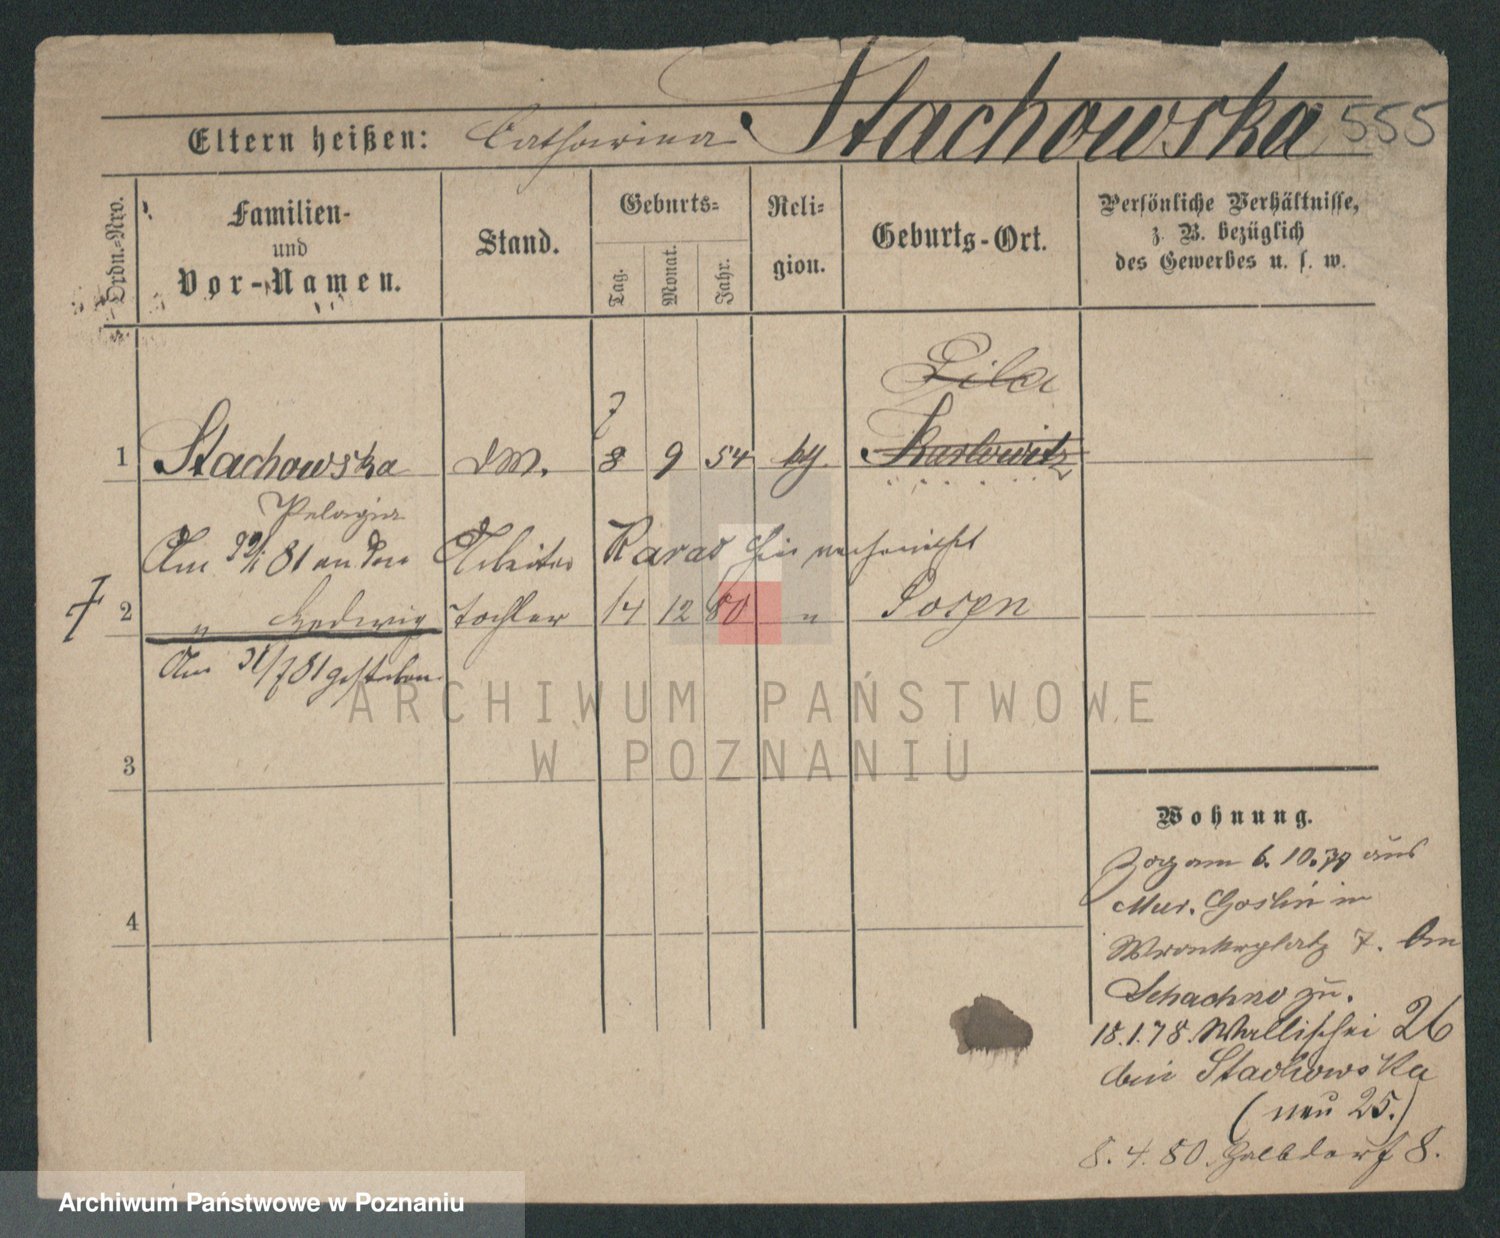 Stachowska 555
Eltern heißen: Catharina
Ordn.-Nro.
Familien-
und
Vor-Namen.
Stand.
Geburts-
Tag.
Monat.
Jahr.
Reli-
gion.
Geburts-Ort.
Persönliche Verhältnisse,
z. B. bezüglich
des Gewerbes u. s. w.
Pila
7
1 Stachowska DM. 8 9 54 Karlowitz
Pelagia
Am 81 an den Arbeiter hier verheirathet
2 " Hedwig Tochter 14 12 80 " Posen
Am 31/7 81 gestorben
ARCHIWUM PAŃSTWOWE
W POZNANIU
3
4
Wohnung.
Zog am 6. 10. 77 aus
Mur. Goslin in
Wronkerplatz 7. bei
Schachno zu.
18.1.78. Wallischei 26
bei Stachowska
(neu 25.)
8. 4. 80. 8.
Archiwum Państwowe w Poznaniu